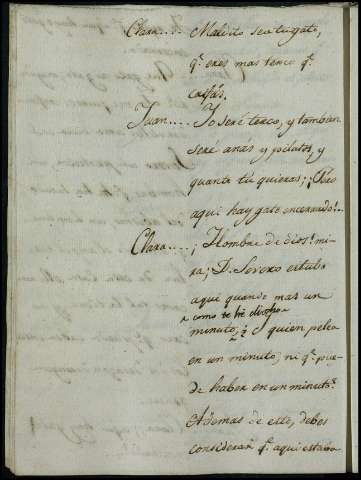 Clara.... Maldito sea tu gato,
qe. eres mas terco qe.
caifás.
Juan.... Yo seré terco, y tambien
seré anás y pilatos, y
quanto tú quieras; ¡Pero
aqui hay gato encerrado!..
Clara...., ¡Hombre de dios! mi-
ra; D. Severo estubo
aqui quando mas un
como te hé dicho
minuto, ¿ quien pelea
en un minuto, ni qe. pue-
de haber en un minuto?
Ademas de esto, debes
considerar qe. aqui estaba